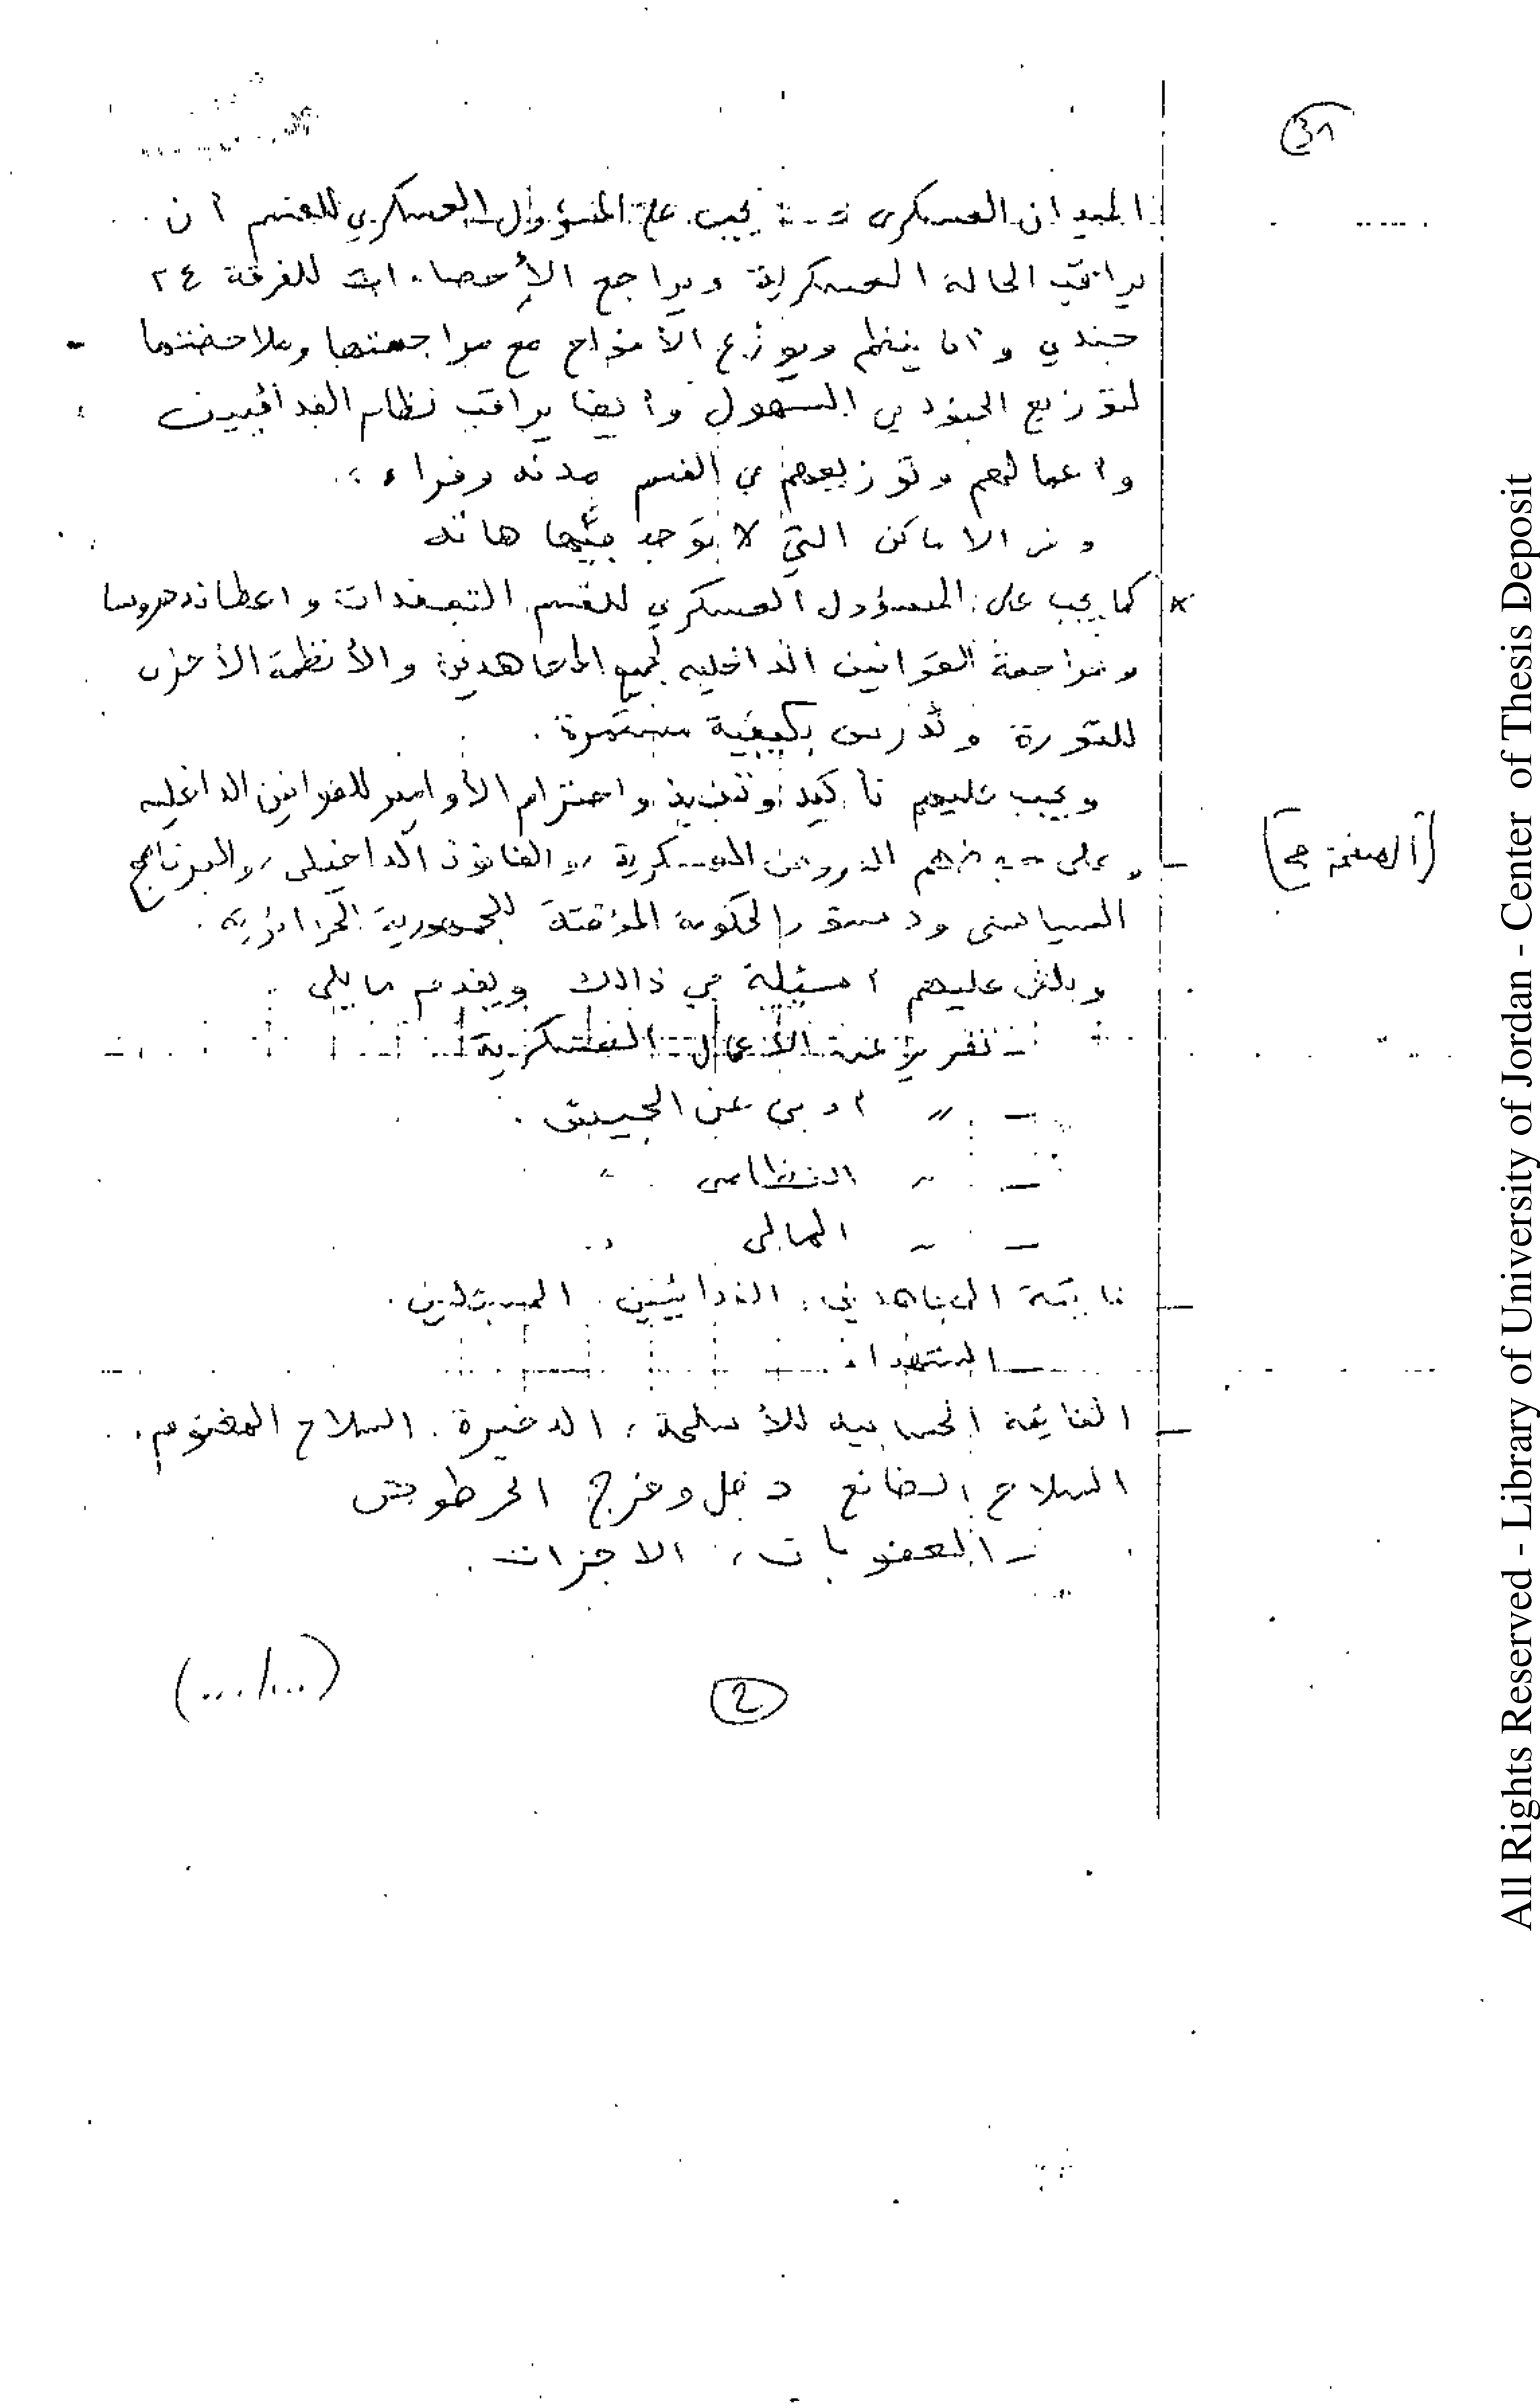 الميدان العسكرى يجب على المسؤول العسكري للقسم أن
يراقب الحالة العسكرية ويراجع الأحصاءات للفرقة ٢٤
جندي وأن ينظم ويوزع الأفواج مع مراجعتها وملاحضتها
لتوزيع الجنود في السهول وأيضا يراقب نظام الفدائيين
واعمالهم وتوزيعهم في القسم مدنه وقراء
الاماكن التي لا يوجد هاته
* كما يجب على المسؤول العسكري للقسم واعطائه دروسا
ومراجعة القوانين الداخليه لجميع المجاهدين والأنظمة الأخرى
للثورة وتدرس بكيفية مستمرة.
ويجب عليهم تأكيد وتنفيذ واحترام الأوامر للقوانين الداخليه
(الصفحة ج)
على الدروس العسكرية، والقانون الداخلى، والبرنامج
السياسى ودستور الحكومة المؤقتة للجمهورية الجزائرية.
ويلقى عليهم أسئلة في ذالك ويقدم ما يلى
– تقرير عن الأعمال العسكرية
– " أدبى عن الجيش.
– " النظامى "
– " المالى "
– قائمة المجاهدين، الفدائيين. المسبلين.
– الشهداء.
– القائمة الحسابيه للأسلحة، الدخيرة. السلاح المغنوم.
السلاح الضائع دخل وخرج الخرطوش
– العقوبات، الاجزات.
(.../...)
2
All Rights Reserved - Library of University of Jordan - Center of Thesis Deposit